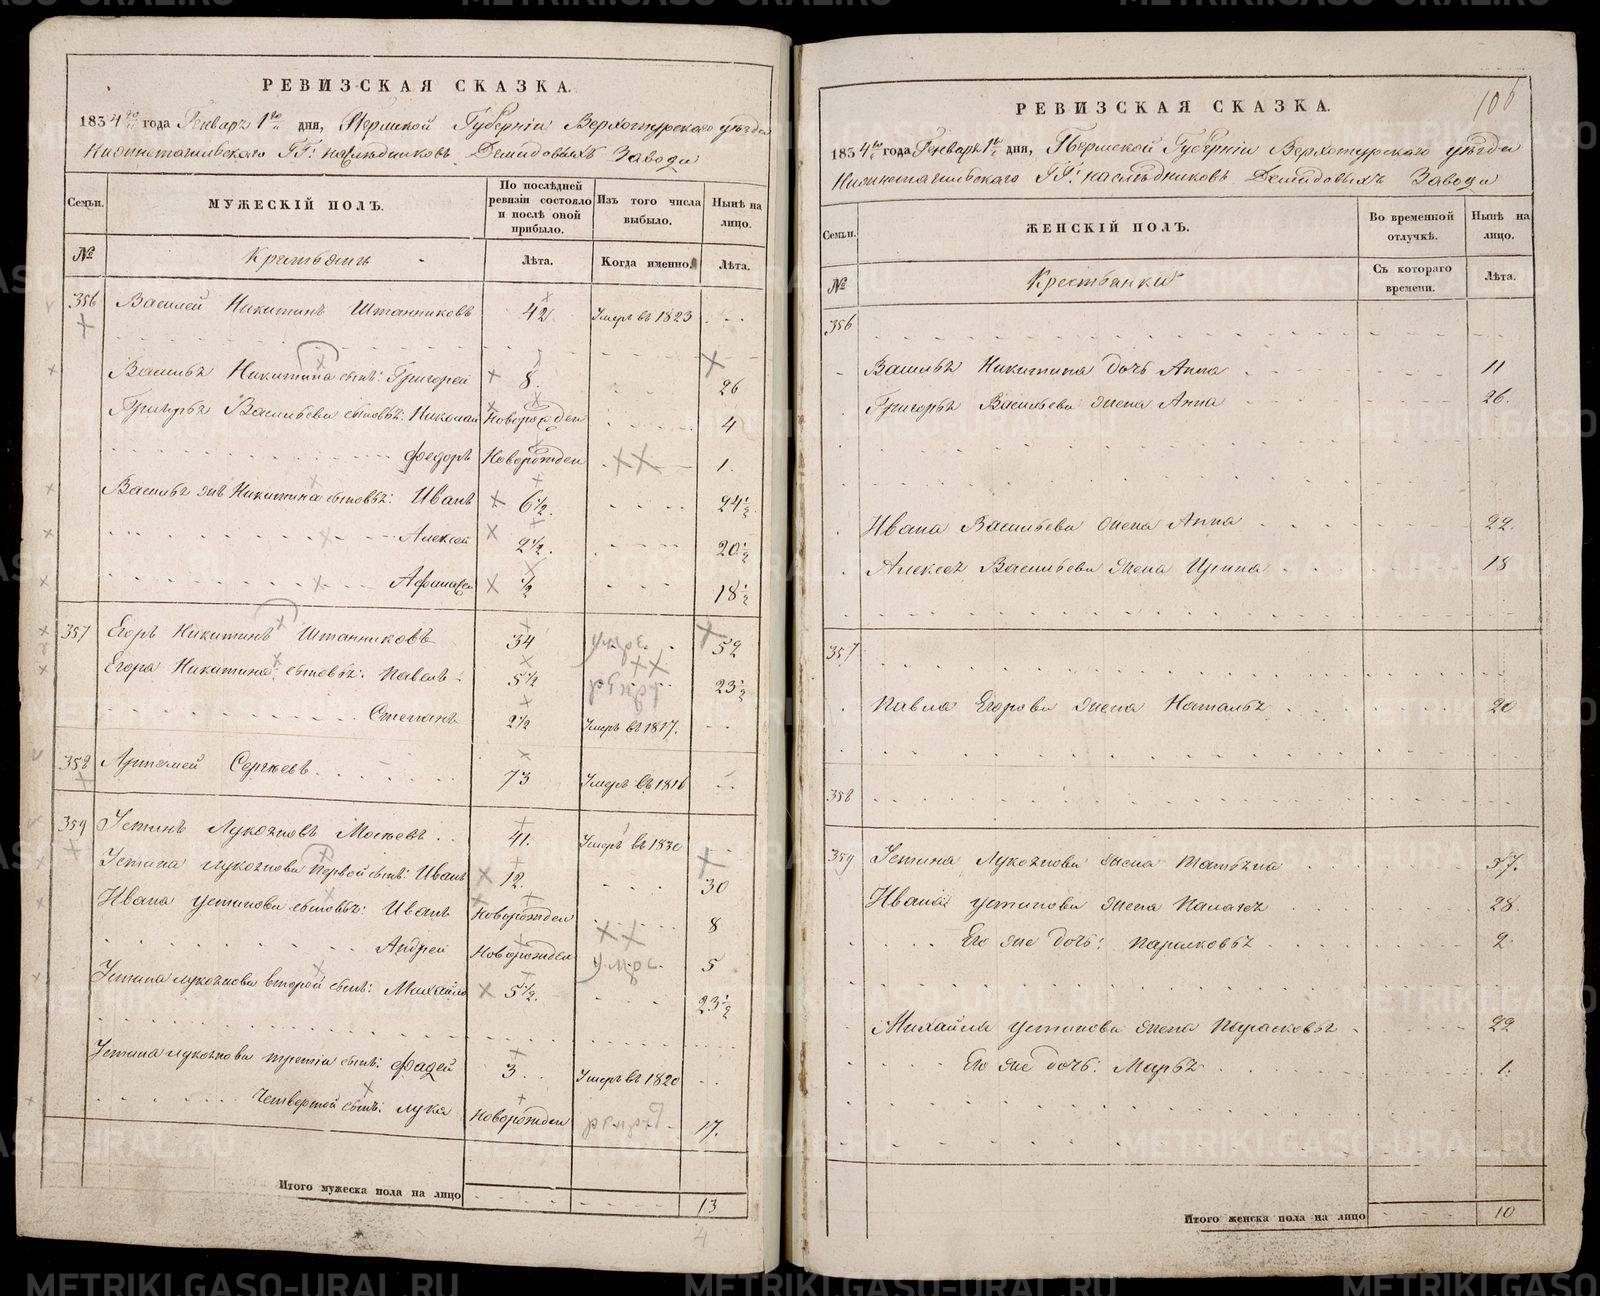 РЕВИЗСКАЯ СКАЗКА.
1834 го года Генваря 1 го дня, Пермской Губерніи Верхотурского уѣзда
Нижнетагильского ГГ: наслѣдниковъ Демидовыхъ Завода
Семьи. МУЖЕСКІЙ ПОЛЪ. По послѣдней ревизіи состояло и послѣ оной прибыло. Изъ того числа выбыло. Нынѣ на лицо.
№ Крестьянъ Лѣта. Когда именно. Лѣта.
356 Василей Никитинъ Штанниковъ 42 Умеръ въ 1823
Василья Никитина сынъ: Григорей 8. 26
Григорья Васильева сыновья: Николай Новорожден 4
Федоръ Новорожден 1.
Василья же Никитина сыновья: Иванъ 6 1/2. 24 1/2
Алексей 2 1/2. 20 1/2
Афанасей 1/2 18 1/2
357 Егоръ Никитинъ Штанниковъ 34 умре. 52
Егора Никитина сыновья: Павелъ 5 1/2 23 1/2
Степанъ 2 1/2 Умеръ въ 1817.
358 Артемей Сергѣевъ 73 Умеръ въ 1816
359 Устинъ Лукояновъ 41. Умеръ въ 1830
Устина Лукоянова первой сынъ: Иванъ 12. 30
Ивана Устинова сыновья: Иванъ Новорожден 8
Андрей Новорожден умре. 5
Устина Лукоянова второй сынъ: Михайло 5 1/2. 23 1/2
Устина Лукоянова третій сынъ: Фадей 3 Умеръ въ 1820
Четвертой сынъ: Лука Новорожден 17.
Итого мужеска пола на лицо 13
4
106
РЕВИЗСКАЯ СКАЗКА.
1834 го года Генваря 1 го дня, Пермской Губерніи Верхотурского уѣзда
Нижнетагильского ГГ: наслѣдниковъ Демидовыхъ Завода
Семьи. ЖЕНСКІЙ ПОЛЪ. Во временной отлучкѣ. Нынѣ на лицо.
№ Крестьянки Съ котораго времени. Лѣта.
356
Василья Никитина дочь Анна 11
Григорья Васильева жена Анна 26.
Ивана Васильева жена Анна 22.
Алексея Васильева жена Ирина 18
357
Павла Егорова жена Наталья 20
358
359 Устина Лукоянова жена Татьяна 57.
Ивана Устинова жена Палагея 28.
Его же дочь: Парасковья 2
Михайла Устинова жена Парасковья 22
Его же дочь: Марья 1.
Итого женска пола на лицо 10
METRIKI.GASO-URAL.RU